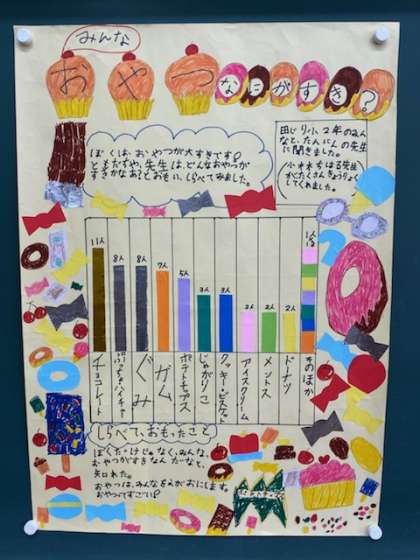 みんな
おやつなにがすき?
ぼくは、おやつが大すきです。
ともだちや、先生は、どんなおやつが
すきかなあとおもい、しらべてみました。
田じり小2年のみん
なと、たんにんの先生
に聞きました。
先生
がたくさんきょうりょく
してくれました。
11人
8人
8人
7人
5人
3人
3人
2人
2人
2人
1人
チョコレート
ハイチュー
ぐみ
ガム
ポテトチップス
じゃがりこ
クッキー・ビスケ
アイスクリーム
メントス
ドーナツ
そのほか
しらべて、おもったこと
ぼくだけじゃなく、みんな、
おやつがすきなんだーなと、
知れた。
おやつは、みんなをえがおにします。
おやつってすごい!